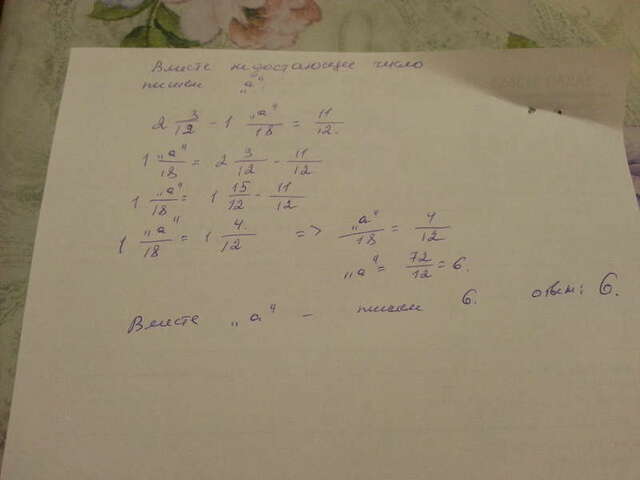 Вместе недостающее число
пишем „а".
2 3/12 - 1 „а"/18 = 11/12.
1 „а"/18 = 2 3/12 - 11/12
1 „а"/18 = 1 15/12 - 11/12
1 „а"/18 = 1 4/12 => „а"/18 = 4/12
„а" = 72/12 = 6.
Вместе „а" - пишем 6. ответ: 6.